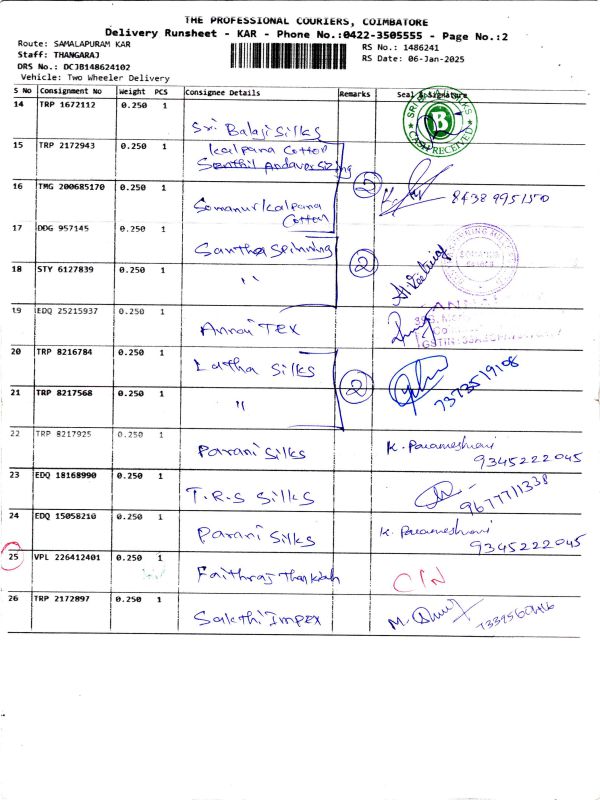 THE PROFESSIONAL COURIERS, COIMBATORE
Delivery Runsheet - KAR - Phone No.:0422-3505555 - Page No.:2
Route: SAMALAPURAM KAR
RS No.: 1486241
Staff: THANGARAJ
RS Date: 06-Jan-2025
DRS No.: DCJB148624102
Vehicle: Two Wheeler Delivery
S No Consignment No Weight PCS Consignee Details Remarks Seal & Signature
14 TRP 1672112 0.250 1 Sri Balaji Silks
SRI BALAJI SILKS B CASH RECEIVED
15 TRP 2172943 0.250 1 Kalpana Cotton
Senthil Andavar Sizing
2
16 TMG 200685170 0.250 1 Somanur Kalpana
Cotton
8438995150
17 DDG 957145 0.250 1 Santha Spinning
2
18 STY 6127839 0.250 1 "
19 EDQ 25215937 0.250 1 Annai TEX
20 TRP 8216784 0.250 1 Latha Silks
2
7373519108
21 TRP 8217568 0.250 1 "
22 TRP 8217925 0.250 1 Parani Silks K. Parameshwari
9345222045
23 EDQ 18168990 0.250 1 T.R.S Silks
9677711338
24 EDQ 15058210 0.250 1 Parani Silks K. Parameshwari
9345222045
25 VPL 226412401 0.250 1 Faithraj Thankiah
26 TRP 2172897 0.250 1 Sakthi Impex